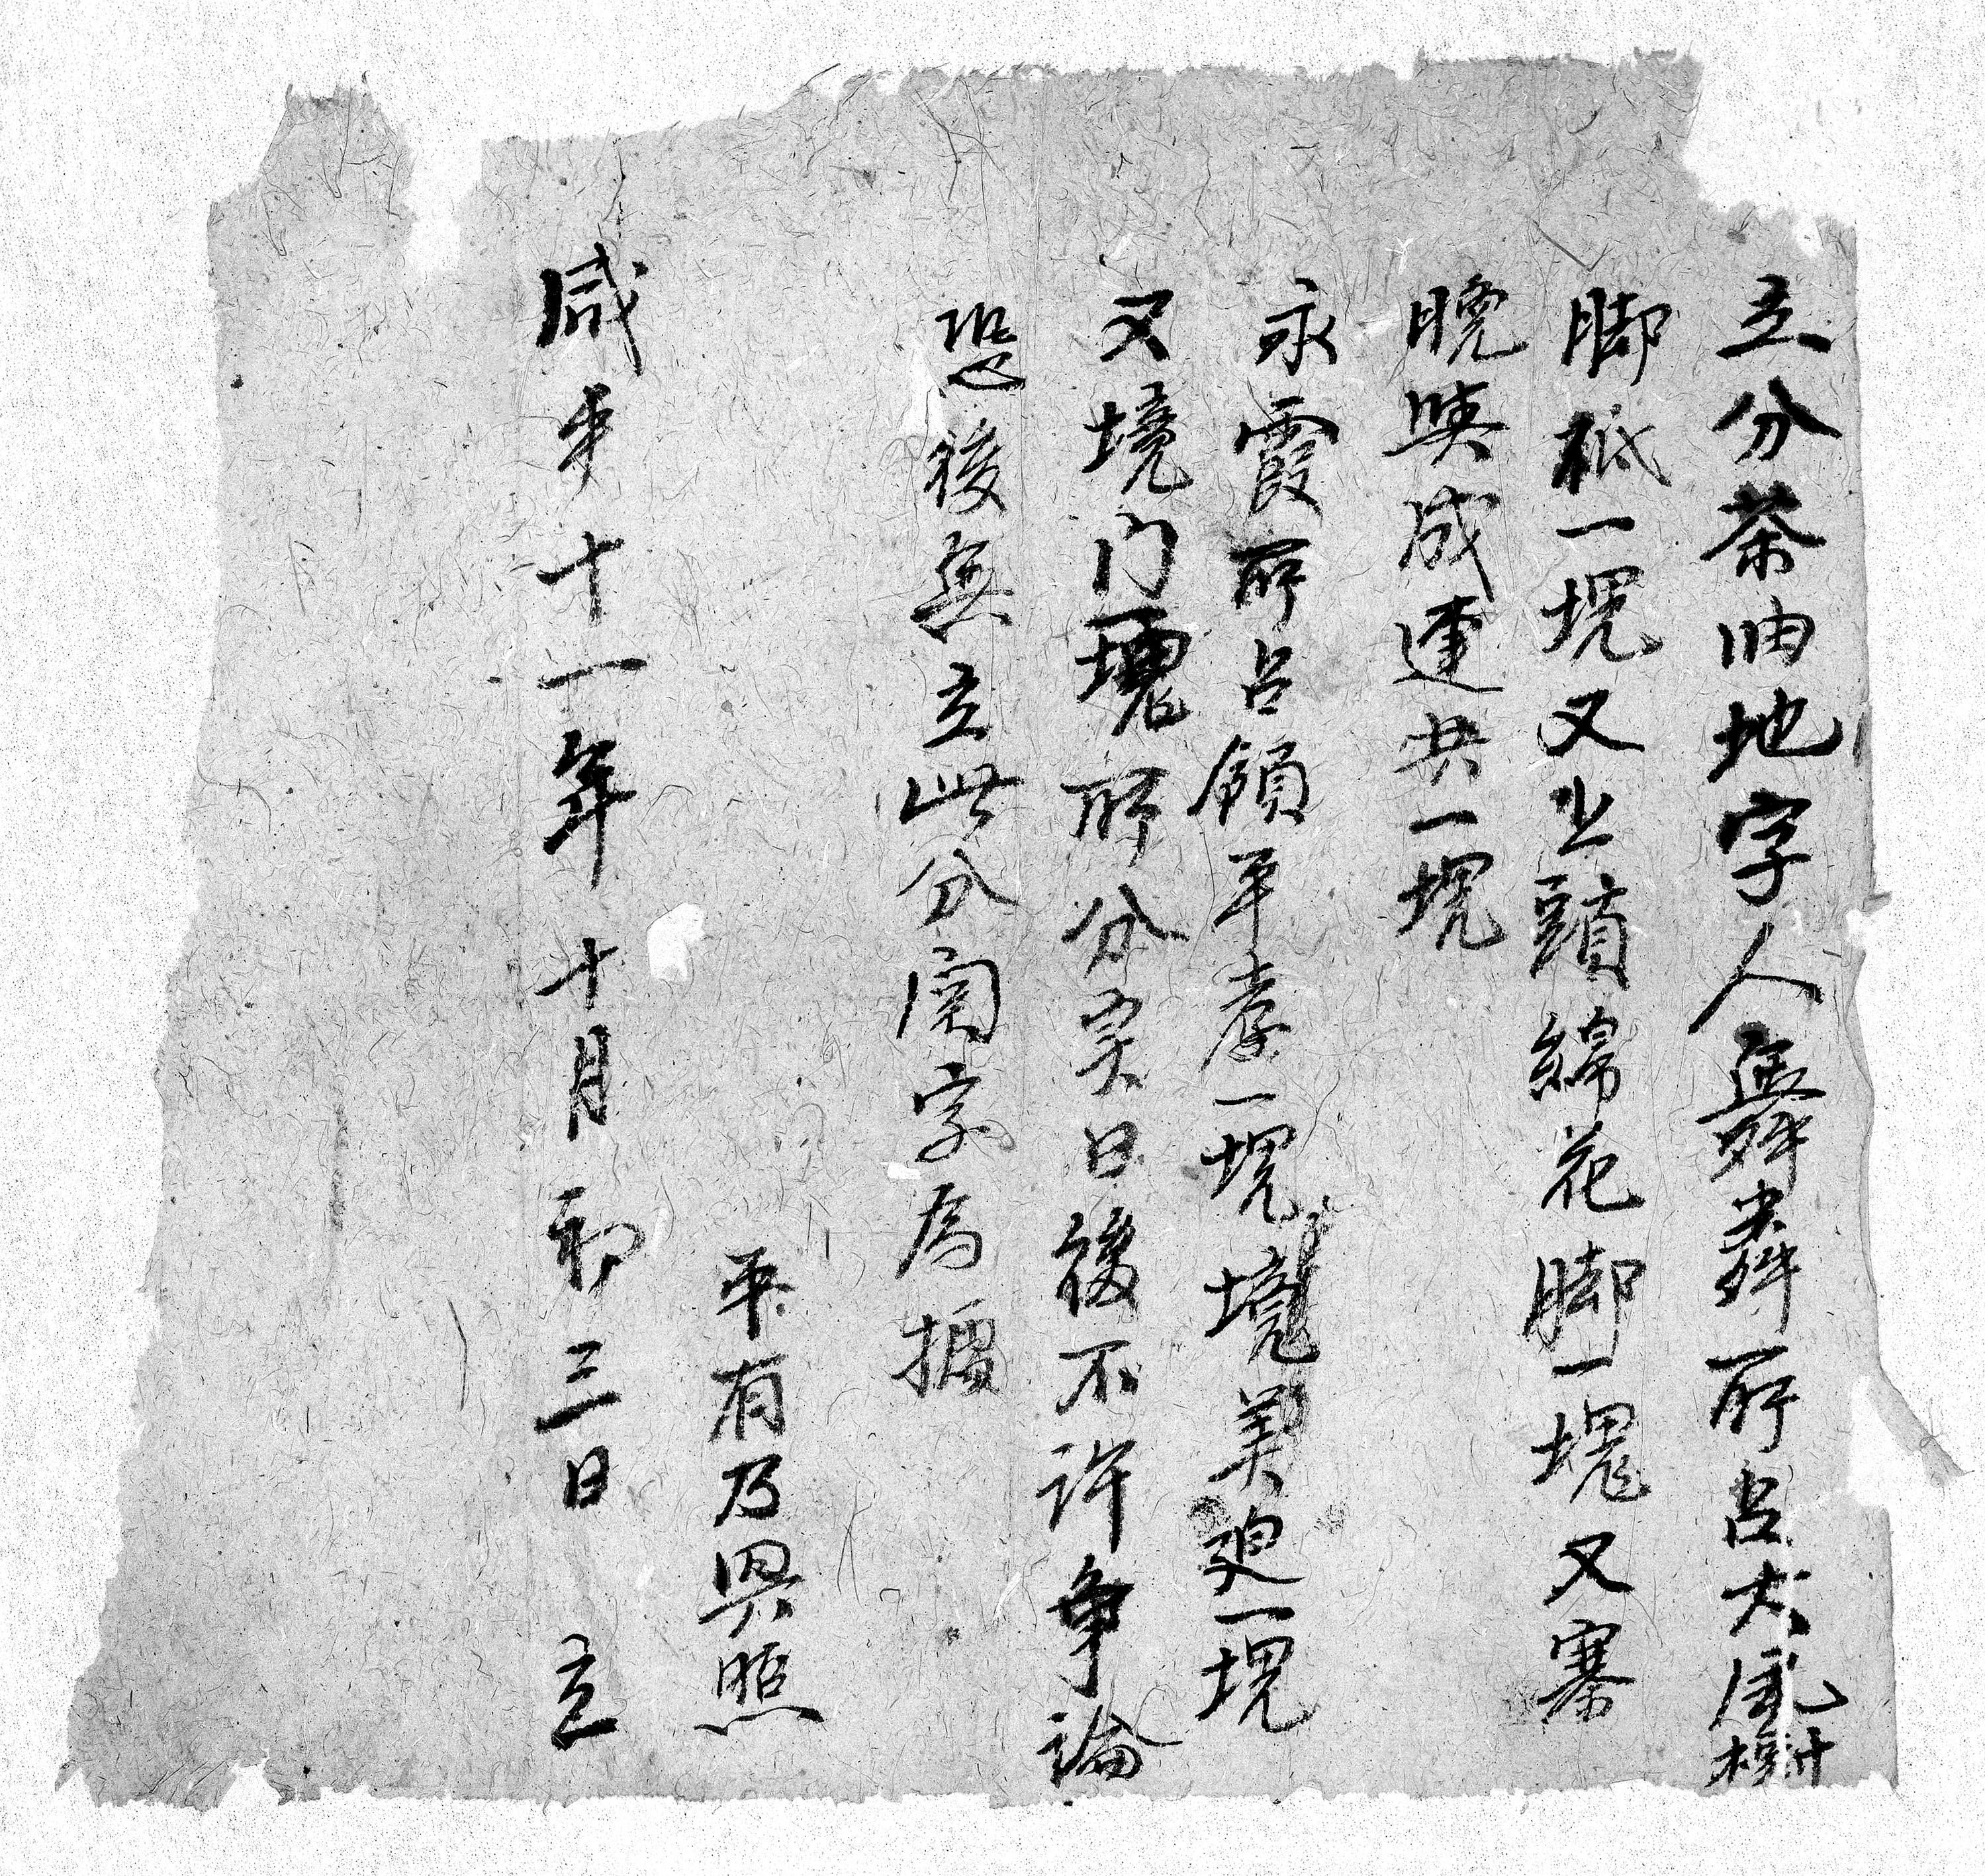 立分茶油地字人舞粦所占大風樹
脚砥一塊又上頭綿花脚一塊又寨
晚與成連共一塊
永霞所占領平孝一塊境美一塊
又境门塊所分矣日後不許争論
恐後無立此分関字為據
平有乃興照
咸丰十一年十月初三日立